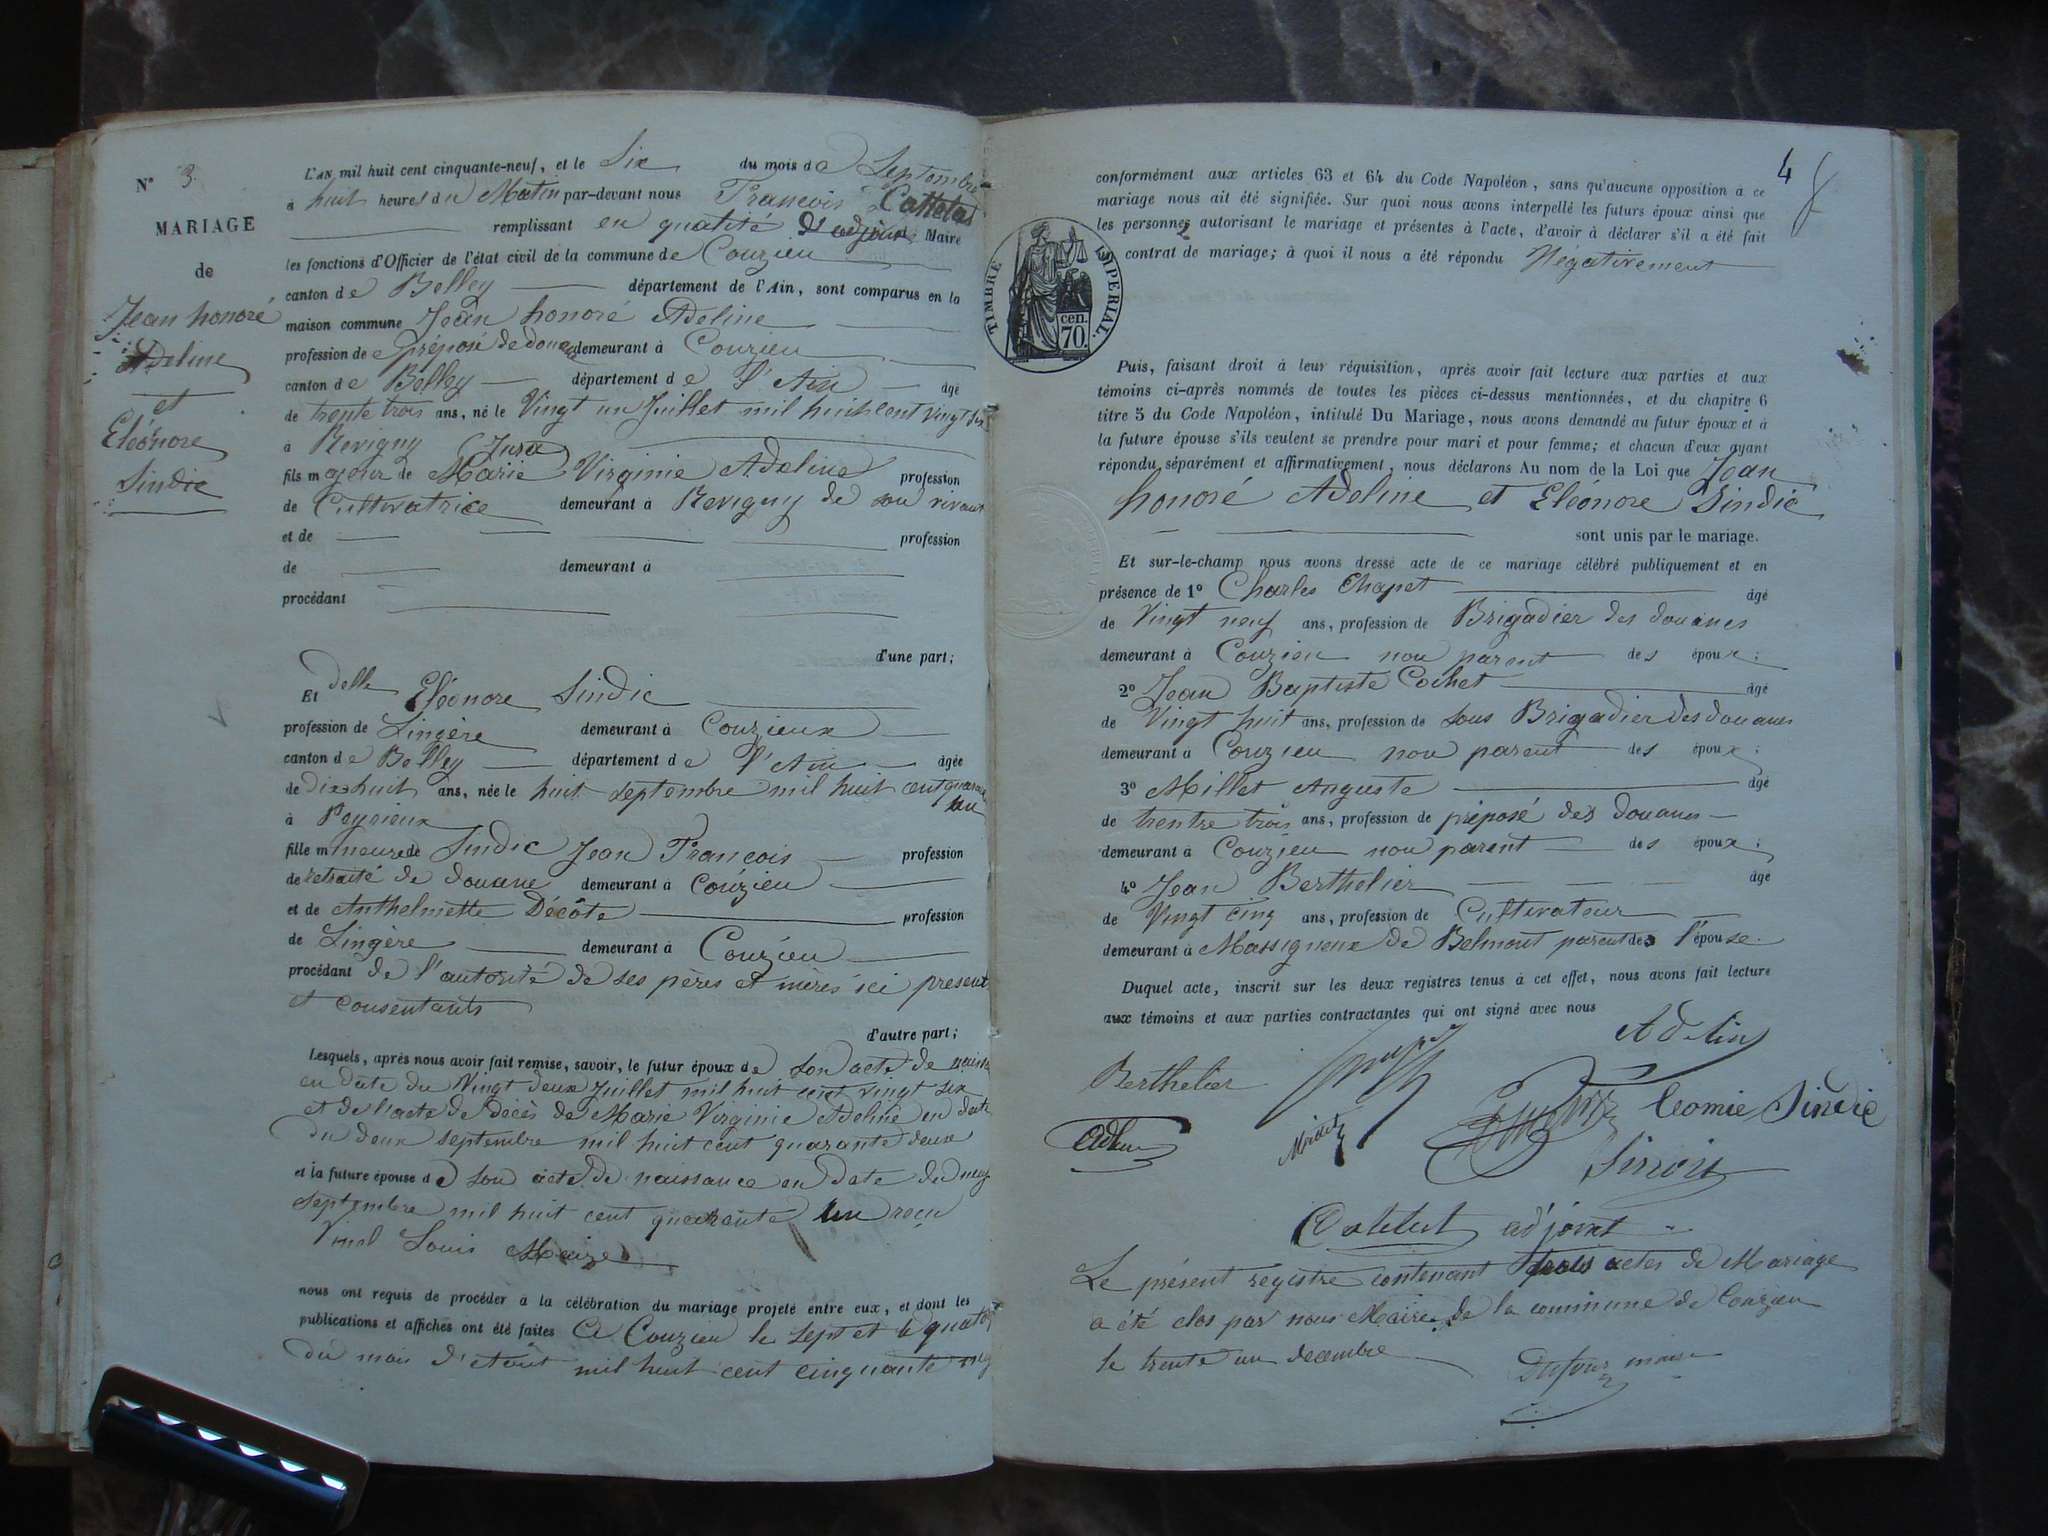 N° 3.
MARIAGE
de
Jean honoré
Adeline
et
Eléonore
Sindic
L'AN mil huit cent cinquante-neuf, et le Six du mois de Septembre
à huit heures du Matin par-devant nous François Cattelas
remplissant en qualité d'adjoint Maire
les fonctions d'Officier de l'état civil de la commune de Couzieu
canton de Belley département de l'Ain, sont comparus en la
maison commune Jean honoré Adeline
profession de préposé de douane demeurant à Couzieu
canton de Belley département de l'Ain âgé
de trente trois ans, né le Vingt un Juillet mil huit cent vingt six
à Revigny (Jura)
fils majeur de Marie Virginie Adeline profession
de Cultivatrice demeurant à Revigny de son vivant
et de profession
de demeurant à
procédant
d'une part;
Et delle Eléonore Sindic
profession de Lingère demeurant à Couzieux
canton de Belley département de l'Ain âgée
de dix huit ans, née le huit septembre mil huit cent quarante un
à Peyrieux
fille mineure de Sindic Jean François profession
de retraité de douane demeurant à Couzieu
et de Anthelmette Décôte profession
de Lingère demeurant à Couzieu
procédant de l'autorité de ses pères et mères ici présent
et consentants
d'autre part;
Lesquels, après nous avoir fait remise, savoir, le futur époux de son acte de naiss
en date du Vingt deux Juillet mil huit cent vingt six
et de l'acte de décès de Marie Virginie Adeline en date
du deux septembre mil huit cent quarante deux
et la future épouse de son acte de naissance en date du neuf
septembre mil huit cent quarante un reçu
Louis Maire
nous ont requis de procéder à la célébration du mariage projeté entre eux, et dont les
publications et affiches ont été faites à Couzieu le sept et le quatorze
du mois d'août mil huit cent cinquante neuf
4
conformément aux articles 63 et 64 du Code Napoléon, sans qu'aucune opposition à ce
mariage nous ait été signifiée. Sur quoi nous avons interpellé les futurs époux ainsi que
les personnes autorisant le mariage et présentes à l'acte, d'avoir à déclarer s'il a été fait
contrat de mariage; à quoi il nous a été répondu Négativement
TIMBRE IMPERIAL.
cen.
70.
Puis, faisant droit à leur réquisition, après avoir fait lecture aux parties et aux
témoins ci-après nommés de toutes les pièces ci-dessus mentionnées, et du chapitre 6
titre 5 du Code Napoléon, intitulé Du Mariage, nous avons demandé au futur époux et à
la future épouse s'ils veulent se prendre pour mari et pour femme; et chacun d'eux ayant
répondu séparément et affirmativement, nous déclarons Au nom de la Loi que Jean
honoré Adeline et Eléonore Sindic
sont unis par le mariage.
Et sur-le-champ nous avons dressé acte de ce mariage célébré publiquement et en
présence de 1° Charles Chapet âgé
de Vingt neuf ans, profession de Brigadier des douanes
demeurant à Couzieu non parent des époux;
2° Jean Baptiste Cochet âgé
de Vingt huit ans, profession de sous Brigadier des douanes
demeurant à Couzieu non parent des époux;
3° Millet Auguste âgé
de trentre trois ans, profession de préposé des douanes
demeurant à Couzieu non parent des époux;
4° Jean Berthelier âgé
de Vingt cinq ans, profession de Cultivateur
demeurant à Massigneux de Belmont parent de l'épouse.
Duquel acte, inscrit sur les deux registres tenus à cet effet, nous avons fait lecture
aux témoins et aux parties contractantes qui ont signé avec nous
Adelin
Berthelier
Leomie Sindic
adjoint
Le présent registre contenant trois actes de Mariage
a été clos par nous Maire de la commune de Couzieu
le trente un decembre
Dufour maire